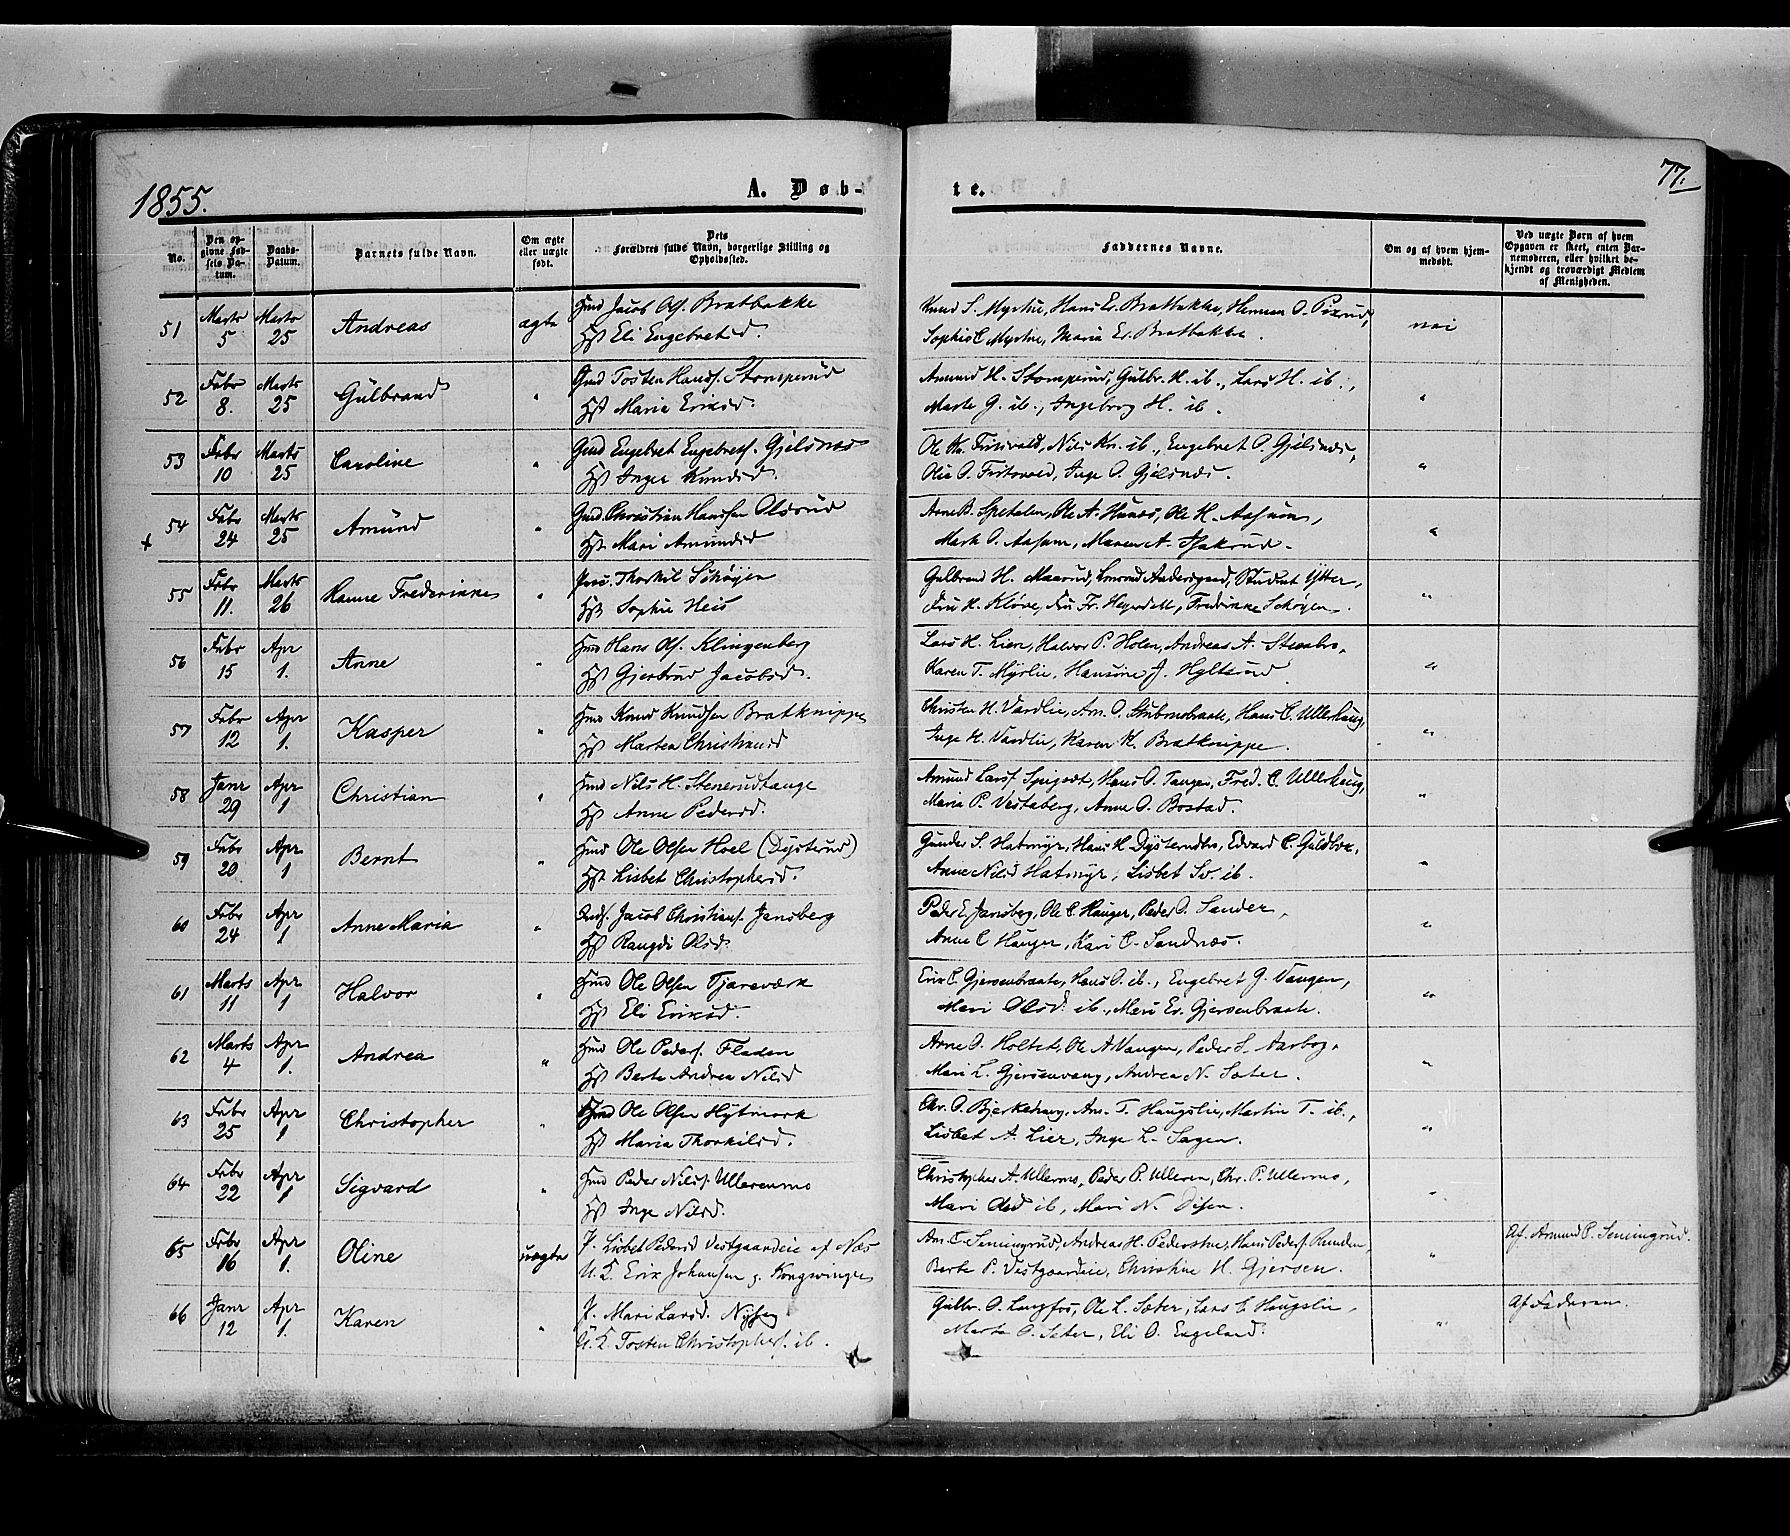 1855.
A. Døb-
te.
77.
No.
Den op-
givne Fød-
sels Da-
tum.
Daabs-
Datum.
Barnets fulde Navn.
Om ægte
eller uægte
født.
Dets
Forældres fulde Navn, borgerlige Stilling og
Opholdssted.
Faddernes Navne.
Om og af hvem hjem-
medøbt.
Ved uægte Børn af hvem
Opgaven er skeet, enten Bar-
nemoderen, eller hvilket be-
kjendt og troværdigt Medlem
af Menigheden.
51 Marts 5 Marts 25 Andreas ægte
Hmd Jacob Ols. Bratbakke
Hst Eli Engebretsd.
Knud S. Myrlie, Hans Er. Bratbakke, Herman O.
Sophie C Myrlie, Maria Er. Bratbakke.
nei
52 Febr 8. Marts 25 Gulbrand "
Gmd Tosten Hans. Stomperud
Hst Maria Eriksd.
Amund H. Stomperud, Gulbr. H. ib., Lars H. ib.,
Marte G. ib., Ingeborg H. ib.
"
53 Febr 10 Marts 25 Caroline "
Gmd Engebret Engebrets. Gjelsnæs
Hst Inger Knudsd.
Ole Kn. Nils Kn. ib., Engebret O. Gjelsnæs,
Olia O. Inge O. Gjelsnæs.
"
54 Febr 24 Marts 25 Amund "
Gmd. Christian Hansen Olsrud
Hst Mari Amundsd
Arne B. Spetalen, Ole A. Ole H. Aasum,
Marte O. Aasum, Maren A.
"
55 Febr 11. Marts 26 Hanne Frederikke "
Thorkil Schøyen
Hst Sophie Heis
Gulbrand H. Maarud, Student Ytter,
Fru H. Kløve, Fru Fr. Heyerdall, Fredrikke Schøyen.
"
56 Febr 15 Apr 1. Anne "
Hmd Hans Ols. Klingenberg
Hst Gjertrud Jacobsd.
Lars H. Lien, Halvor P. Holen, Andreas A. Stenbro,
Karen T. Myrlie, Hansine J. Hyltsrud
"
57 Febr 12 Apr 1. Kasper "
Hmd Knud Knudsen Bratknippe
Hst Martea Christiansd
Christen H. Vardlie, Am. O. Stubmobraate, Hans C. Ullerhaug,
Inge H. Vardlie, Karen K. Bratknippe.
"
58 Janr 29 Apr 1 Christian "
Hmd Nils H. Stenerudhauge
Hst Anne Pedersd.
Amund Lars. Spigset, Hans O. Tangen, Fred. C. Ullerhaug,
Maria P. Vestaberg, Anne O. Bostad.
"
59 Febr 20 Apr 1 Bernt "
Hmd Ole Olsen Hoel (Dysterud)
Hst Lisbet Christophersd.
Gunder S. Hatmyr, Hans H Edvard C. Guldbek,
Anne Nilsd Hatmyr, Lisbet Sv ib.
"
60 Febr 24 Apr 1 Anne Maria "
Jacob Christians. Jansberg
Hst Rangdi Olsd.
Peder E. Jansberg, Ole C. Hauger, Peder O. Sander,
Anne C Hauger, Kari C. Sandnæs.
"
61 Marts 11 Apr 1 Halvor "
Hmd Ole Olsen Tjæreværk
Hst Eli Eriksd.
Erik C. Gjersenbraate, Hans O. ib., Engebret G. Vangen,
Mari Olsd. ib., Mari Er. Gjersenbraate.
"
62 Marts 4 Apr 1. Andrea "
Hmd Ole Peders. Fladen
Hst Berte Andrea Nilsd
Arne O. Holtet, Ole A Vangen, Peder S. Aarbog,
Mari L. Gjersenvang, Andrea N. Sæter.
"
63 Febr 25 Apr 1 Christopher "
Hmd Ole Olsen Hytmork
Hst Maria Thorkilsd.
Chr. O. Bjerkehaug, Am. T. Haugslie, Martin T. ib.,
Lisbet A. Lier, Inge L. Sagen.
"
64 Febr 22 Apr 1 Sigvard "
Hmd Peder Nils. Ullerenmo
Hst Inge Nilsd.
Christopher A. Ullernmo, Peder P. Ulleren, Chr. P. Ullernmo,
Mari Olsd ib, Mari N. Disen.
"
65 Febr 16 Apr 1. Oline uægte
P. Lisbet Pedersd Vestgaardeie af Næs
U.K. Erik Johansen p. Kongsvinger
Am. C. Seningrud, Andreas H. Pederstue, Hans Peders. Runden,
Berte P. Vestgaardeie, Christine H. Gjersen.
"
Af. Amund C. Seningrud.
66 Janr 12 Apr 1. Karen "
P. Mari Larsd.
U.K. Tosten Christophers. ib.
Gulbr. O. Langfos, Ole L. Sæter, Lars C Haugslie,
Marta O. Sæter, Eli O. Engeland.
"
Af Faderen.